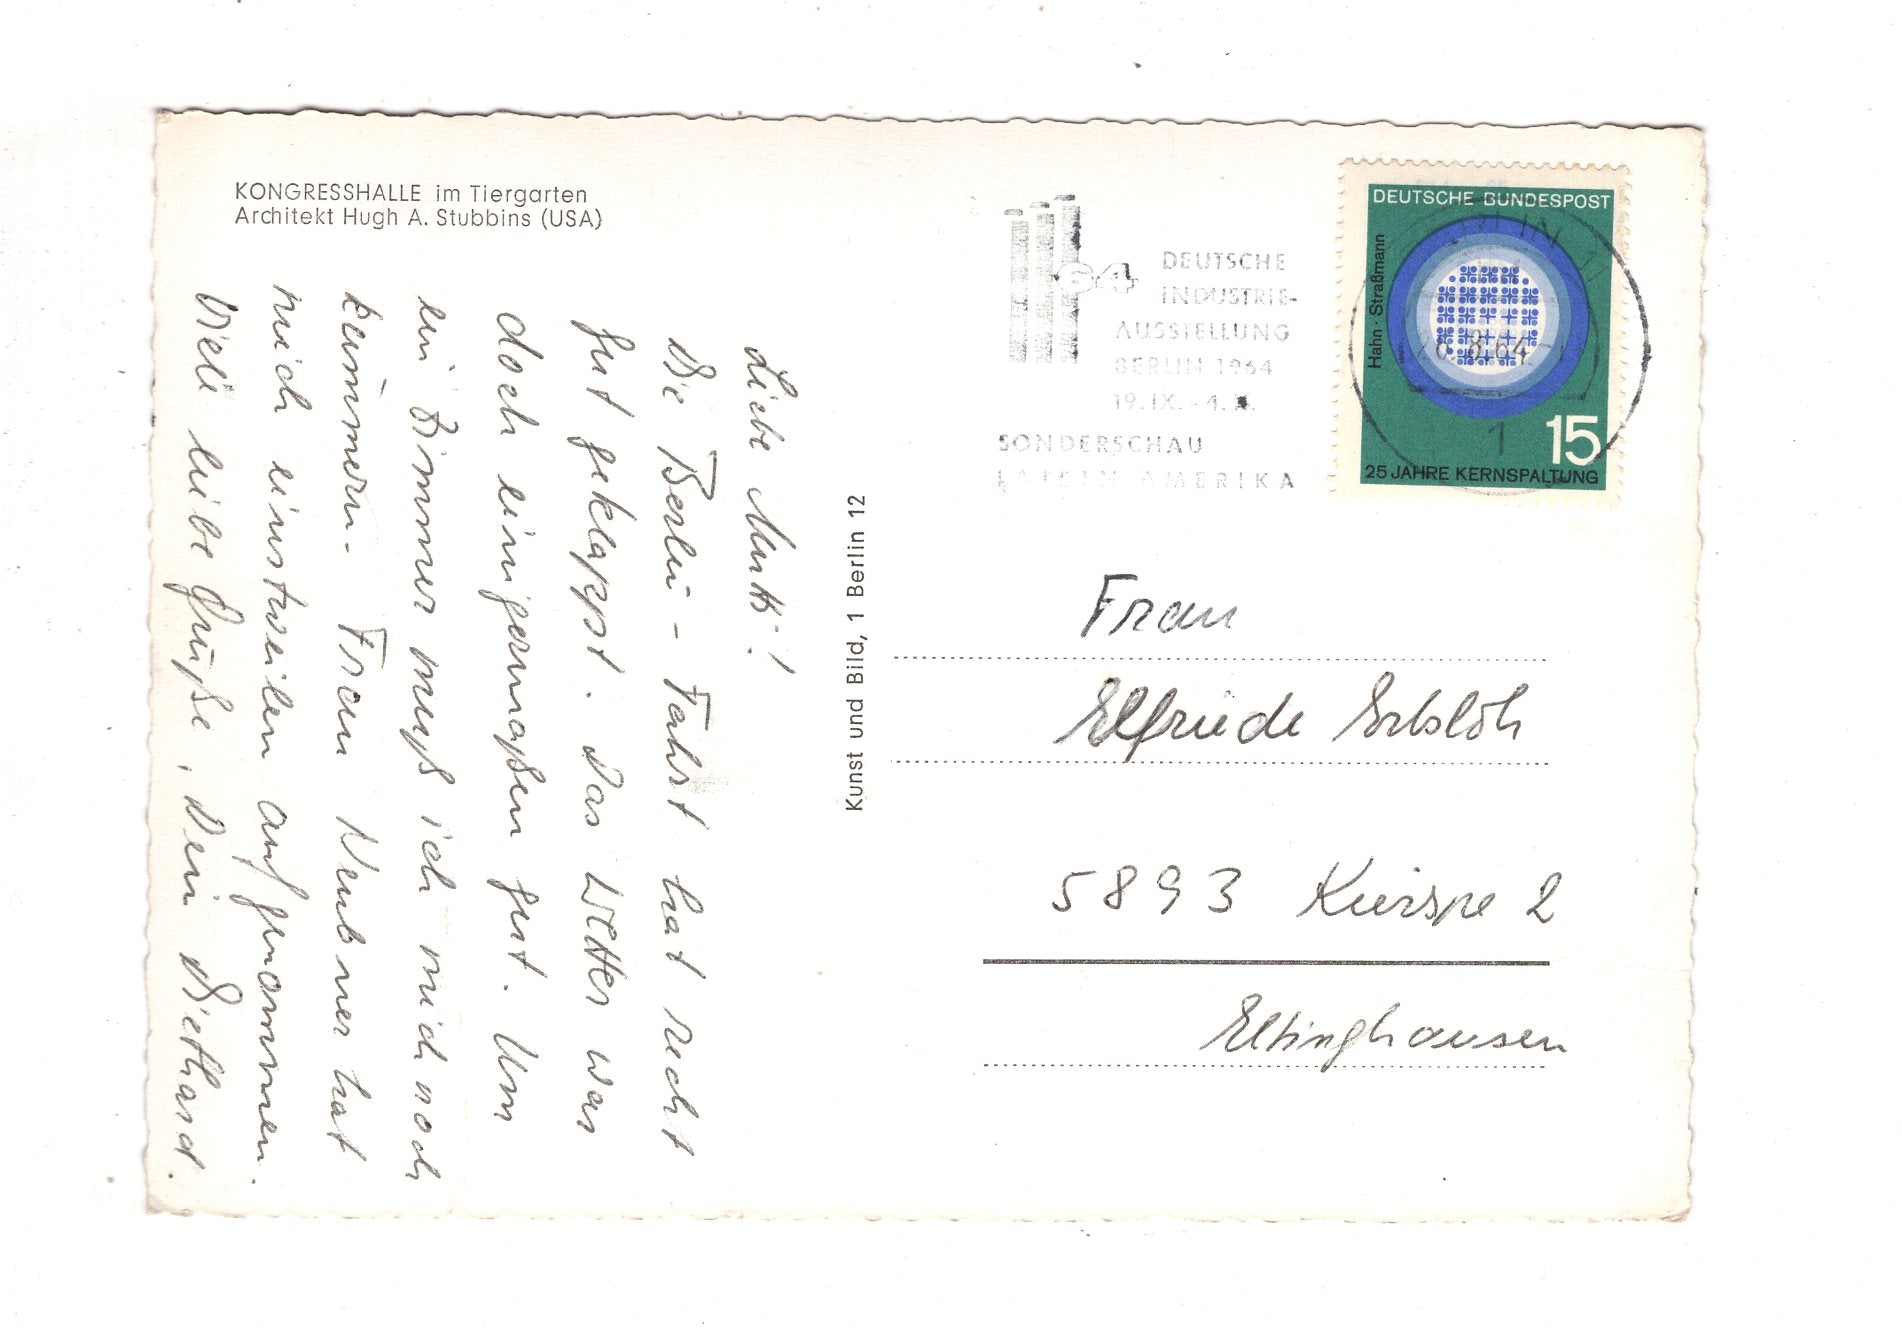 KONGRESSHALLE im Tiergarten
Architekt Hugh A. Stubbins (USA)
Liebe Mutti!
Die Berlin - Fahrt hat recht
gut geklappt. Das Wetter war
doch einigermaßen gut. Um
ein Zimmer muß ich mich noch
kümmern. Frau Neubner hat
mich einstweilen aufgenommen.
Viele liebe Grüße, Dein Diethard.
Kunst und Bild, 1 Berlin 12
64
DEUTSCHE
INDUSTRIE-
AUSSTELLUNG
BERLIN 1964
19.IX. - 4.X.
SONDERSCHAU
LATEIN-AMERIKA
DEUTSCHE BUNDESPOST
Hahn · Straßmann
15
25 JAHRE KERNSPALTUNG
BERLIN
8.64
1
Frau
Elfriede Erbslöh
5893 Kierspe 2
Eltinghausen